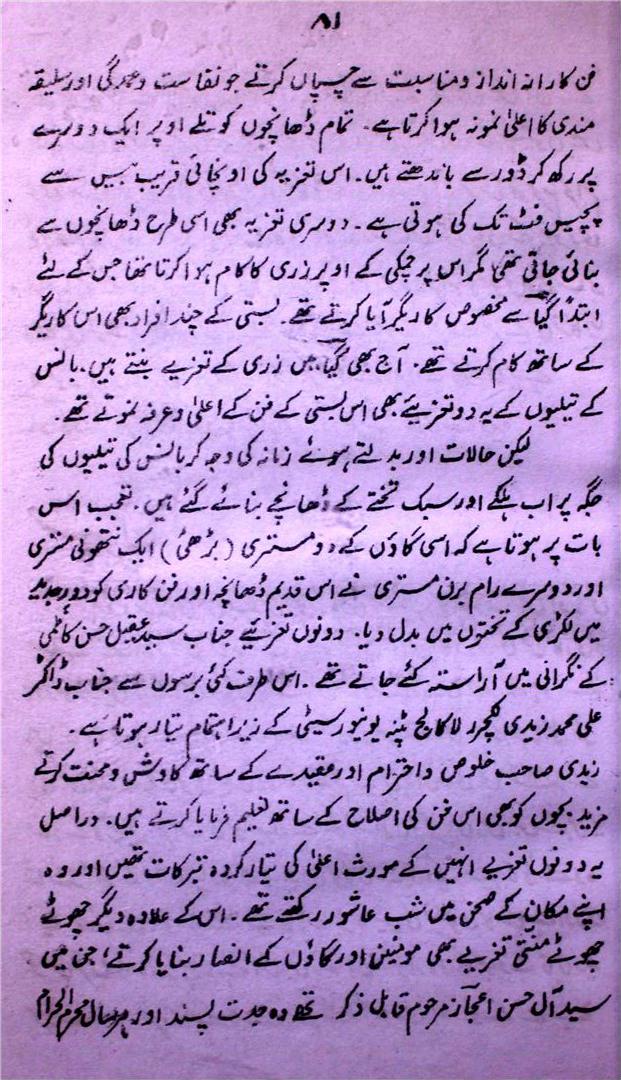 ۸۱
فن کارانہ انداز و مناسبت سے چسپاں کرتے جو نفاست و عمدگی اور سلیقہ
مندی کا اعلیٰ نمونہ ہوا کرتا ہے۔ تمام ڈھانچوں کو تلے اوپر ایک دوسرے
پر رکھ کر ڈور سے باندھتے ہیں۔ اس تعزیہ کی اونچائی قریب بیس سے
پچیس فٹ تک کی ہوتی ہے۔ دوسری تعزیہ بھی اسی طرح ڈھانچوں سے
بنائی جاتی تھی مگر اس پر چپکی کے اوپر زری کا کام ہوا کرتا تھا جس کے لئے
ابتداً گیا سے مخصوص کاریگر آیا کرتے تھے۔ بستی کے چند افراد بھی اس کاریگر
کے ساتھ کام کرتے تھے۔ آج بھی گیا میں زری کے تعزیے بنتے ہیں۔ بانس
کے تیلیوں کے یہ دو تعزیئے بھی اس بستی کے فن کے اعلیٰ و عرفہ نمونے تھے۔
لیکن حالات اور بدلتے ہوئے زمانہ کی وجہ کر بانس کی تیلیوں کی
جگہ پر اب ہلکے اور سبک تختے کے ڈھانچے بنائے گئے ہیں۔ تعجب اس
بات پر ہوتا ہے کہ اسی گاؤں کے دو مستری (بڑھئی) ایک نتھونی مستری
اور دوسرے رام برن مستری نے اس قدیم ڈھانچہ اور فن کاری کو دورِ جدید
میں لکڑی کے تختوں میں بدل دیا۔ دونوں تعزیئے جناب سید عقیل حسن کاظمی
کے نگرانی میں آراستہ کئے جاتے تھے۔ اس طرف کئی برسوں سے جناب ڈاکٹر
علی محمد زیدی لکچرر لا کالج پٹنہ یونیورسیٹی کے زیر اہتمام تیار ہوتا ہے۔
زیدی صاحب خلوص و احترام اور عقیدے کے ساتھ کاوش و محنت کرتے
مزید بچوں کو بھی اس فن کی اصلاح کے ساتھ تعلیم فرمایا کرتے ہیں۔ دراصل
یہ دونوں تعزیے انہیں کے مورث اعلیٰ کی تیار کردہ تبرکات تھیں اور وہ
اپنے مکان کے صحن میں شب عاشور رکھتے تھے۔ اس کے علاوہ دیگر چھوٹے
چھوٹے منّتی تعزیے بھی مومنین اور گاؤں کے انصار بنایا کرتے، جن میں
سید آل حسن اعجاز مرحوم قابل ذکر تھے وہ جدت پسند اور ہر سال محرم الحرام